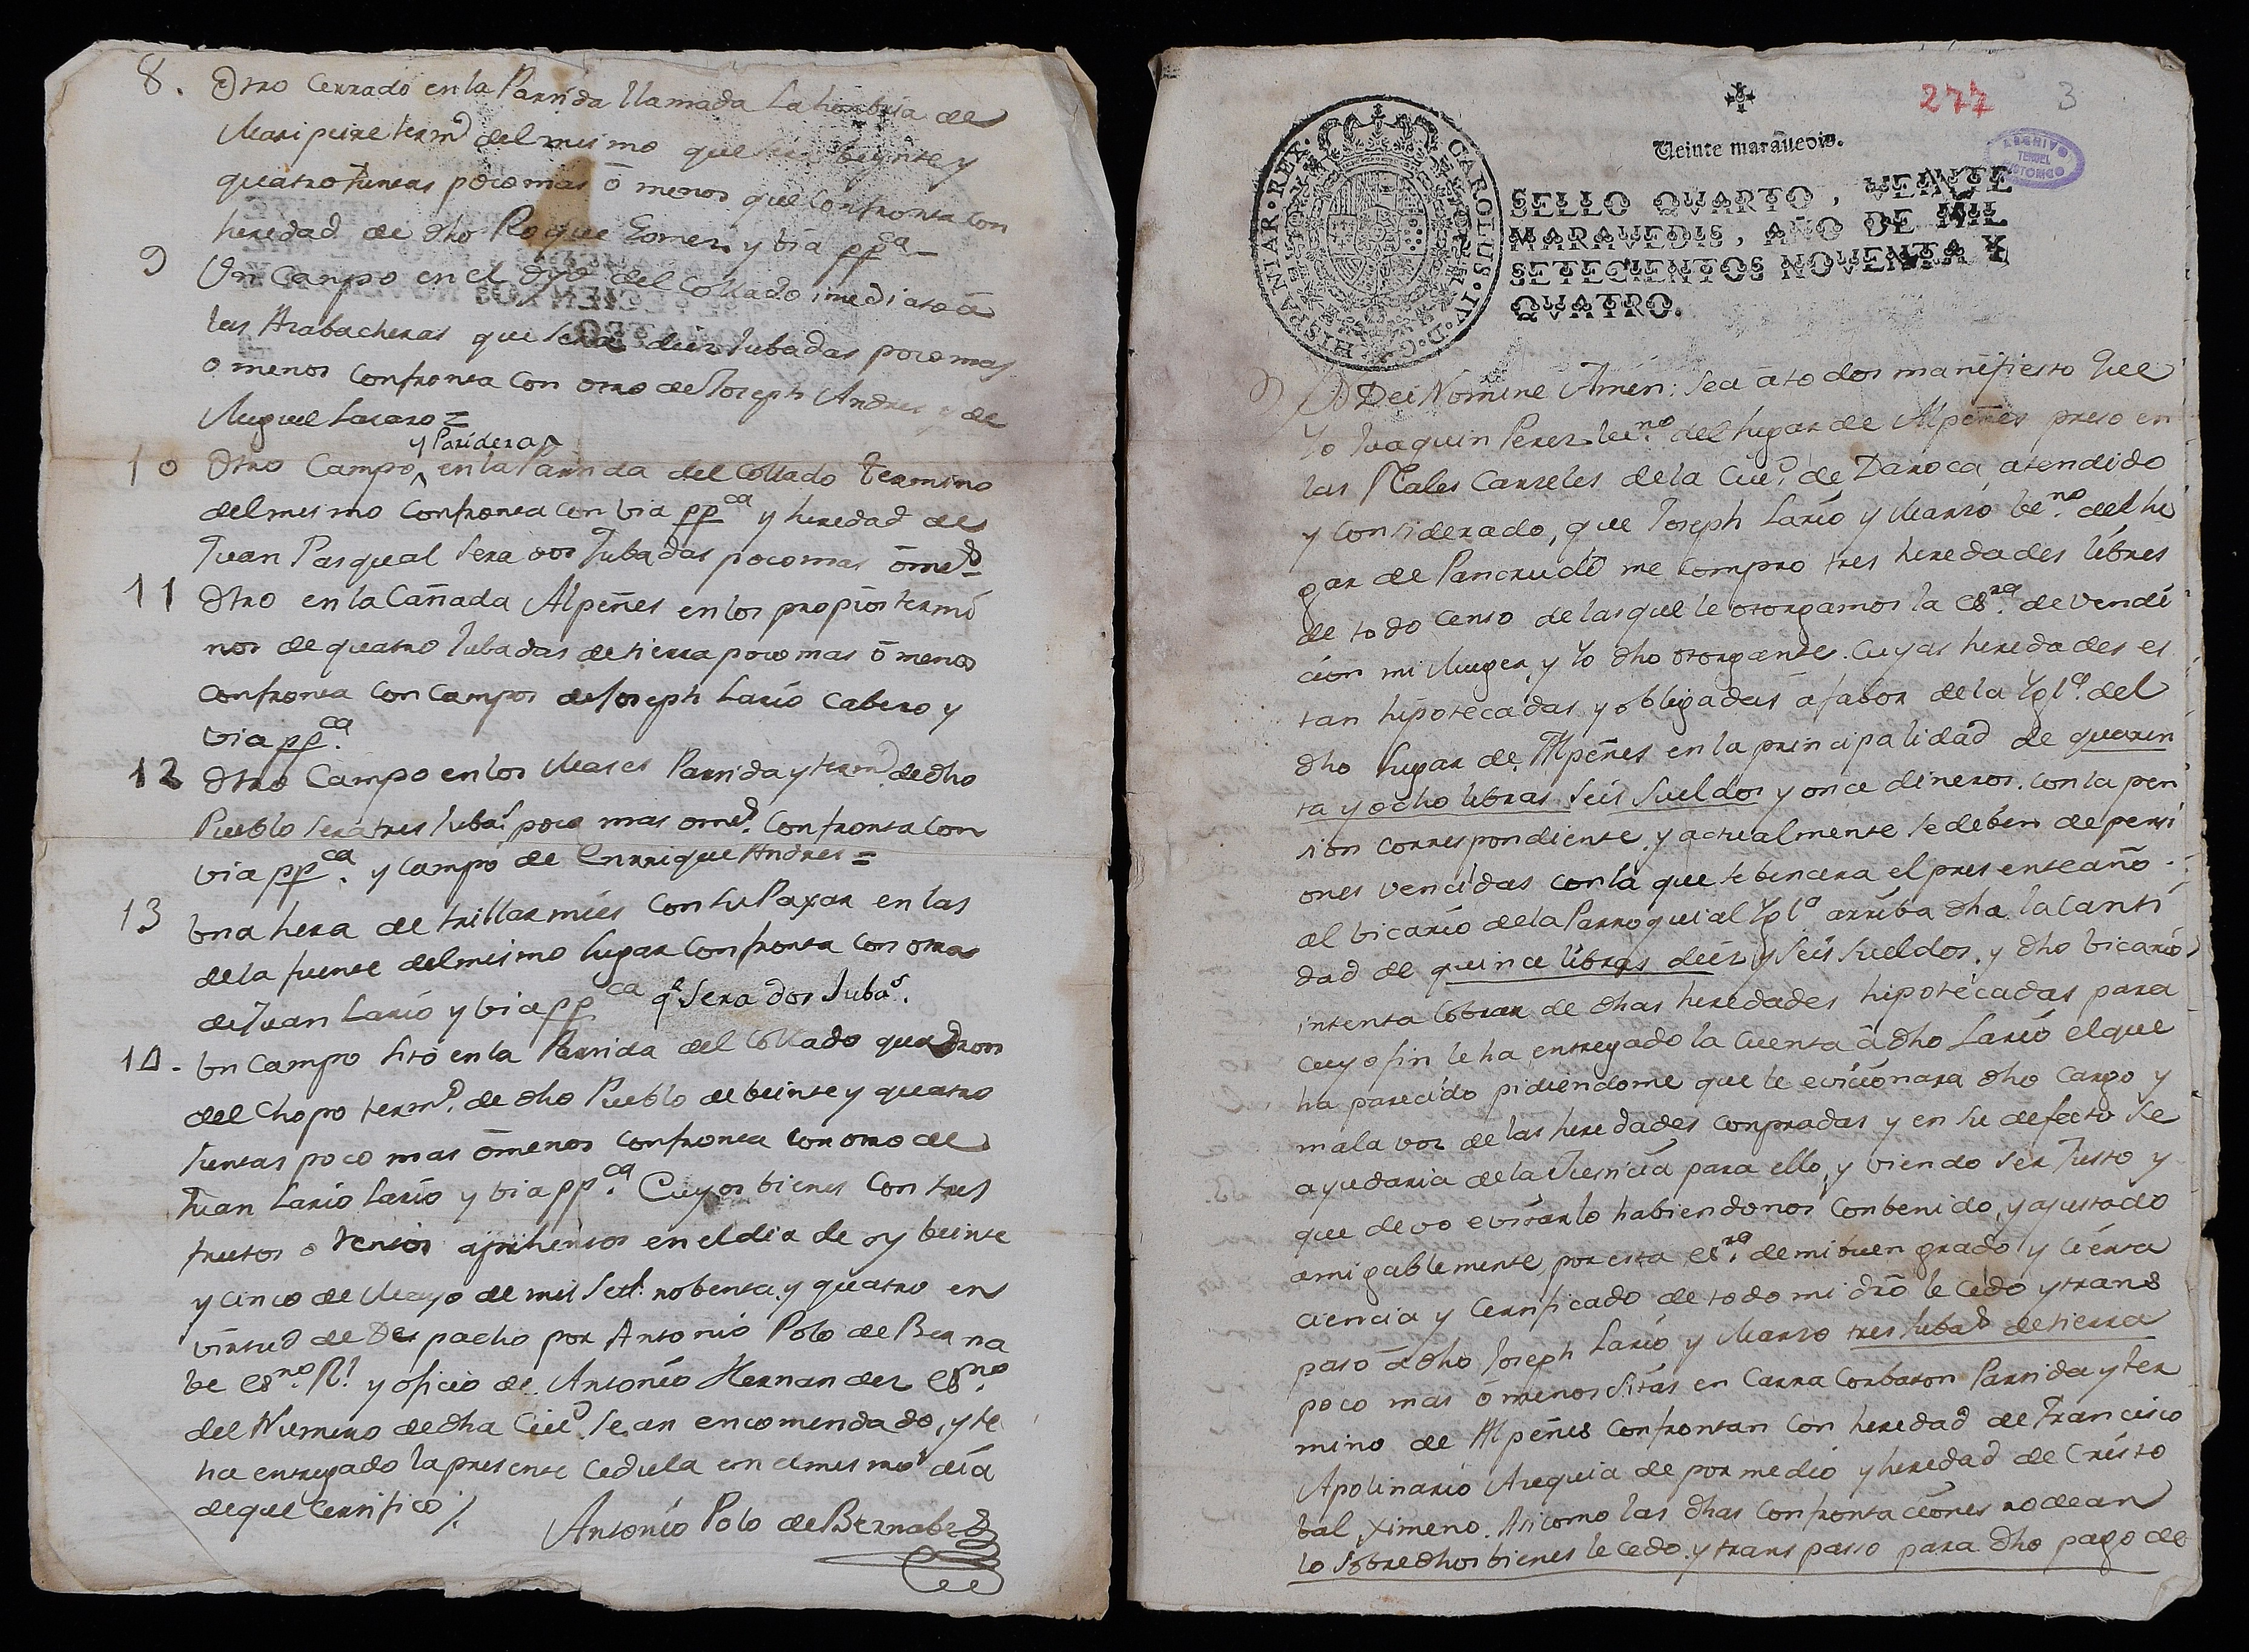 8. Otro Cerrado en la Parrida llamada la hombria de
Mari peire term.º del mismo que será beynte y
quatro Juntas poco mas ō menos que Confronta con
heredad de dho Roque Gomez y bia pp.ca
9 Un Campo en el dho del Collado imediato ā
las Arabacheras que será diez Jubadas poco mas
o menos Confronta con otro de Joseph Andres y de
Miguel Lazaro =
y Paridera
10 Otro Campo en la Parrida del Collado termino
del mismo Confronta con via pp.ca y heredad de
Juan Pasqual sera dos Jubadas poco mas ō me.s
11 Otro en la Cañada Alpeñes en los propios termi
nos de quatro Jubadas de tierra poco mas ō menos
confronta con Campos de Joseph Lario Cabero y
via pp.ca
12 Otro Campo en los Mases Parrida y term.º de dho
Pueblo sera tres Juba.s poco mas o me.s Confronta con
via pp.ca y campo de Enrrique Andres =
13 Una hera de trillar mies con su Paxar en las
de la fuente del mismo lugar Confronta con otras
de Juan Lario y via pp.ca q.e sera dos Juba.s
14. Un Campo sitō en la Parrida del Collado quadron
del Chopo term.º de dho Pueblo de beinte y quatro
Juntas poco mas ōmenos confronta con otro de
Juan Lario Lario y via pp.ca Cuyos bienes con tres
frutos o rentos aprhensos en el dia de oy beinte
y cinco de Mayo de mil Set.s nobenta y quatro en
virtud de Despacho por Antonio Polo de Berna
be es.no R.l y oficio de Antonio Hernandez es.no
del Numero de dha Ciu.d se an encomendado, y se
ha entregado la presente Cedula en el mismo dia
de que Certifico /.
Antonio Polo de Bernabe
277 3
Veinte marauedis.
ARCHIVO
TERUEL
HISTORICO
CAROLUS·IV·D·G·HISPANIAR·REX·
SELLO QVARTO, VEINTE
MARAVEDIS, AÑO DE MIL
SETECIENTOS NOVENTA Y
QVATRO.
Dei Nomine Amen: Sea ā todos manifiesto que
Yo Juaquin Perez ve.no del Lugar de Alpeñes preso en
las Rales Carseles de la Ciu.d de Daroca atendido
y considerado, que Joseph Lario y Marzo be.no del lu
gar de Pancrudo me compro tres heredades libres
de todo censo de las que le otorgamos la es.ra de vendi
cion mi Muger, y Yo dho otorgante. Cuyas heredades es
tan hipotecadas y obligadas ā fabor de la Ygl.a del
dho lugar de Alpeñes en la principalidad de quaren
ta y ocho libras seis Sueldos y once dineros. con la pen
sion correspondiente, y actualmente se deben de pensi
ones vencidas con la que se bencera el presente año
al bicario de la Parroquial Ygl.a arriba dha la canti
dad de quince libras diez y seis sueldos, y dho bicario
intenta cobrar de dhas heredades hipotecadas para
cuyo fin le ha entregado la Cuenta ā dho Lario el que
ha parecido pidiendome que le evicionara dho cargo y
mala voz de las heredades conpradas y en su defecto se
ayudaria de la Justicia para ello, y viendo ser Justo y
que devo evitarlo habiendonos conbenido, y ajustado
amigablemente, por esta es.ra de mi buen grado y cierta
ciencia y Certificado de todo mi drō le cedo y trans
paso ā dho Joseph Lario y Marzo tres Juba.s de tierra
poco mas ō menos sitas en Carra Corbaron Parrida y ter
mino de Alpeñes Confrontan con heredad de Francisco
Apolinario Azequia de por medio y heredad de Cristo
bal Ximeno. Asi como las dhas Confrontaciones rodean
lo sobredhos bienes le cedo y transpasso para dho pago de